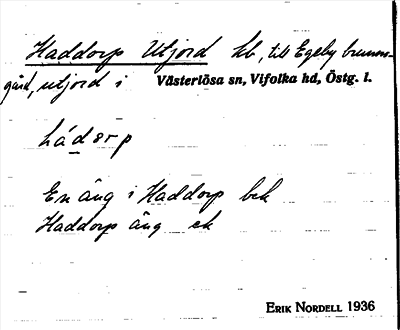 Haddorp Utjord hb, till Egeby brunns-
gård, utjord i Västerlösa sn, Vifolka hd, Östg. l.
hádorp
En äng i Haddorp bek
Haddorps äng ek
ERIK NORDELL 1936